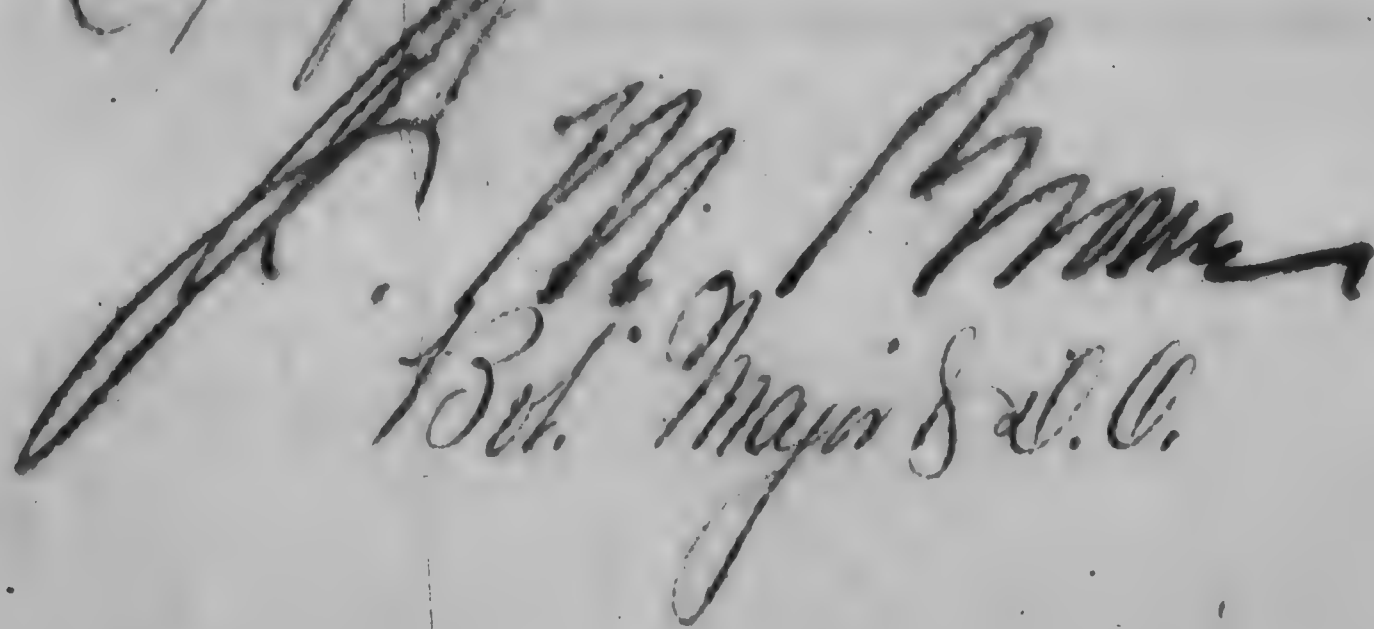 J. M. Brown
Bvt. Major & A.Q.